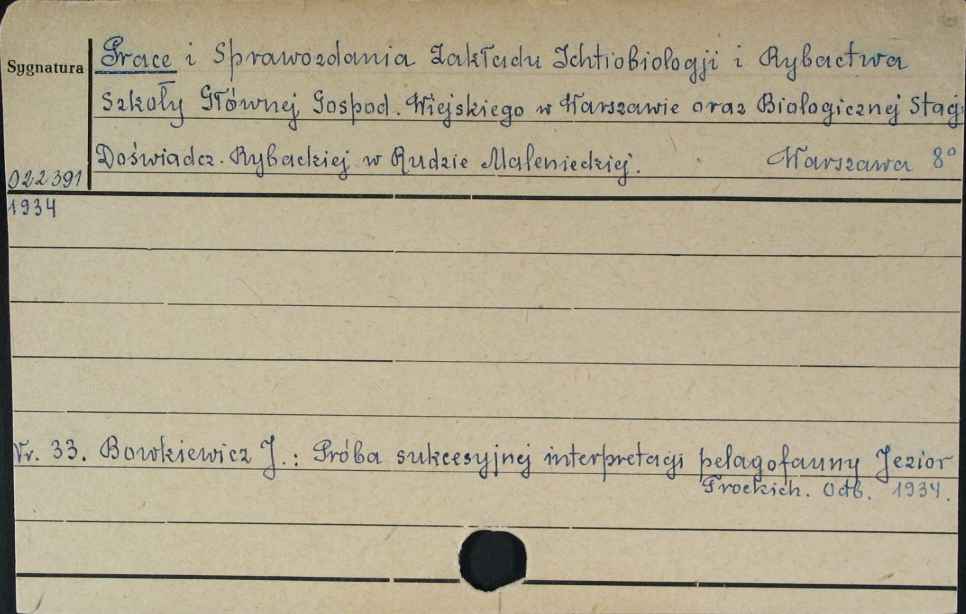 Prace i Sprawozdania Zakładu Ichtiobiologji i Rybactwa
Sygnatura
Szkoły Głównej Gospod. Wiejskiego w Warszawie oraz Biologicznej Stacji
Doświadcz. Rybackiej w Rudzie Malenieckiej. Warszawa 8°
022391
1934
Nr. 33. Bowkiewicz J.: Próba sukcesyjnej interpretacji pelagofauny Jezior
Trockich. Odb. 1934.